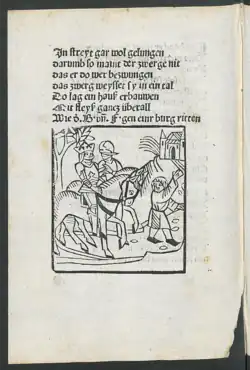 In streyt gar wol gelungen
darumb so maint der zwerge nit
das er do wer bezwungen
das zwerg weyset sy in ein tal
Do lag ein hauß erbauwen
Mit fleyß gancz überall
Wie d. B. vñ. F. gen einr burg ritten